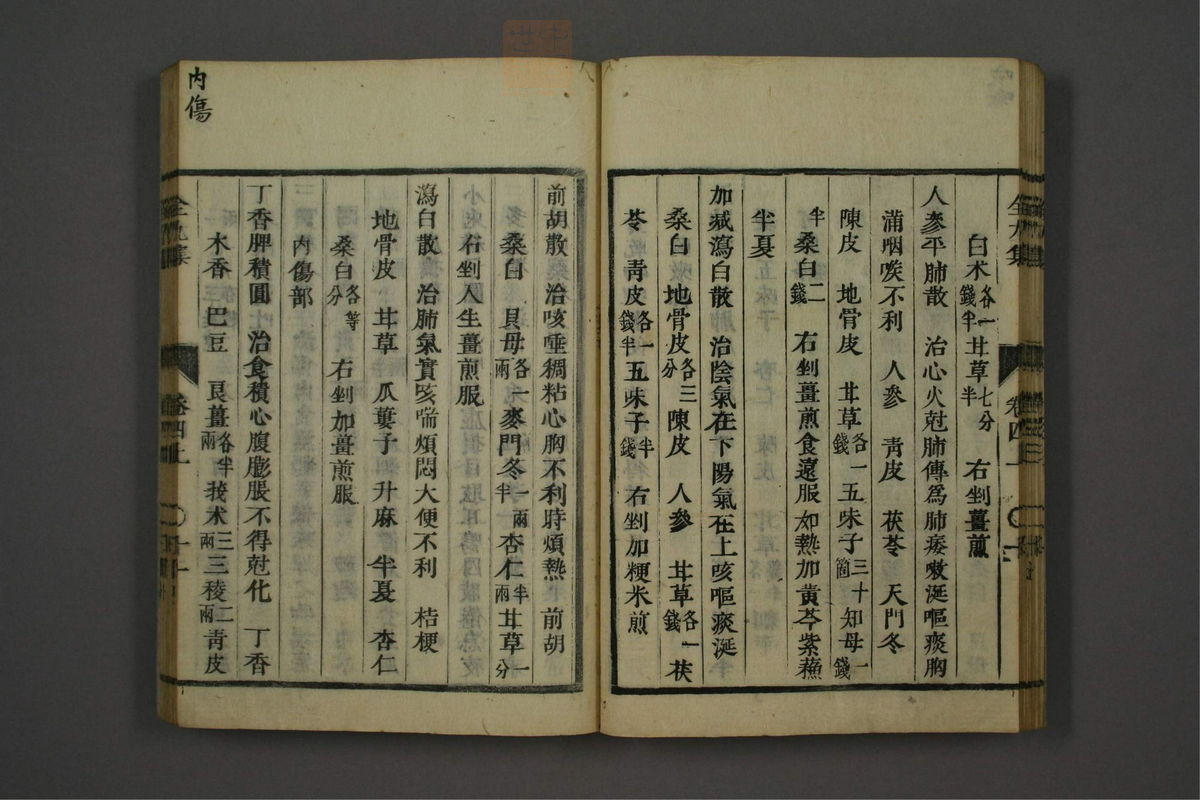 白朮各一錢半甘草七分半　右剉薑煎
人參平肺散　治心火尅肺傳爲肺痿嗽涎嘔痰胸
滿咽喉不利　人參　靑皮　茯苓　天門冬
陳皮　地骨皮　甘草各一錢五味子三十箇知母一錢
半桑白二錢　右剉薑煎食遠服如熱加黃芩紫蘓
半夏
加减瀉白散　治陰氣在下陽氣在上咳嘔痰涎
桑白　地骨皮各三分陳皮　人參　甘草各一錢茯
苓　靑皮各一錢半五味子半錢　右剉加粳米煎
前胡散　治咳唾稠粘心胸不利時煩熱　前胡
桑白　貝母各一兩麥門冬一兩半杏仁半兩甘草一分
右剉入生薑煎服
瀉白散　治肺氣實咳喘煩悶大便不利　桔梗
地骨皮　甘草　瓜蔞子　升麻　半夏　杏仁
桑白各等分　右剉加薑煎服
內傷部
丁香脾積圓　治食積心腹膨脹不得尅化　丁香
木香　巴豆　良薑各半兩莪朮三兩三稜二兩靑皮
全九集
卷四上
內傷